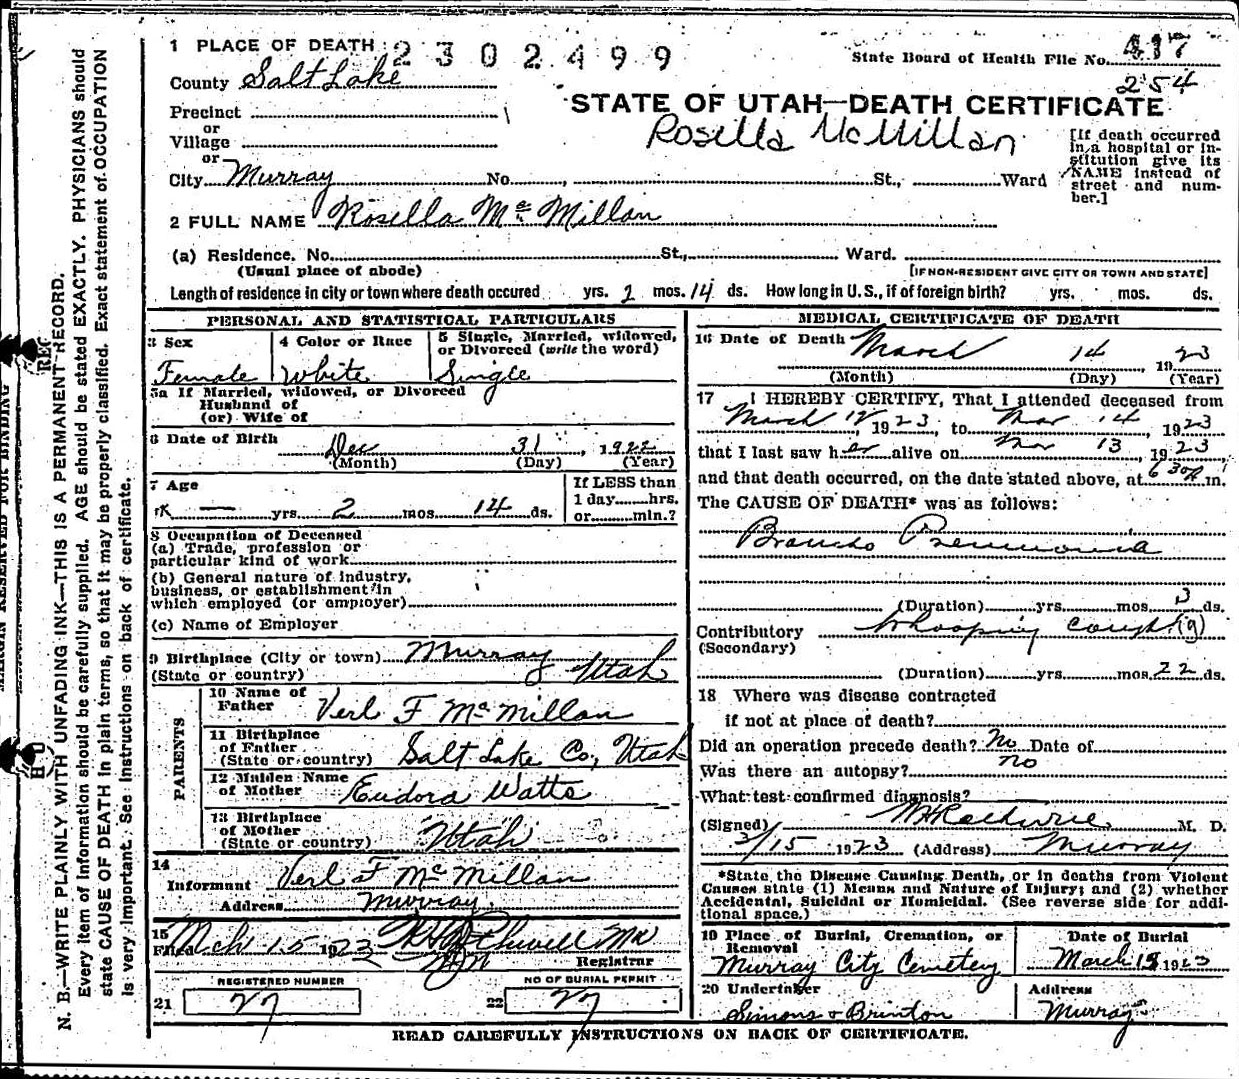 1 PLACE OF DEATH 2302499
State Board of Health File No. 417
County Salt Lake
254
STATE OF UTAH—DEATH CERTIFICATE
Rosella McMillan
Precinct
or
Village
or
City Murray No. , St., Ward
[If death occurred in a hospital or institution give its NAME instead of street and number.]
2 FULL NAME Rosella Mc Millan
(a) Residence. No. St., Ward.
(Usual place of abode)
[IF NON-RESIDENT GIVE CITY OR TOWN AND STATE]
Length of residence in city or town where death occured yrs. 2 mos. 14 ds. How long in U.S., if of foreign birth? yrs. mos. ds.
PERSONAL AND STATISTICAL PARTICULARS
3 Sex
Female
4 Color or Race
White
5 Single, Married, widowed, or Divorced (write the word)
Single
5a If Married, widowed, or Divorced
Husband of
(or) Wife of
6 Date of Birth
Dec 31, 1922
(Month) (Day) (Year)
7 Age
— yrs. 2 mos. 14 ds.
If LESS than
1 day hrs.
or min.?
8 Occupation of Deceased
(a) Trade, profession or
particular kind of work
(b) General nature of industry,
business, or establishment in
which employed (or employer)
(c) Name of Employer
9 Birthplace (City or town) Murray
(State or country) Utah
PARENTS
10 Name of
Father Verl F Mc Millan
11 Birthplace
of Father
(State or country) Salt Lake Co, Utah
12 Maiden Name
of Mother Eudora Watts
13 Birthplace
of Mother
(State or country) Utah
14
Informant Verl F Mc Millan
Address Murray
15
Filed Mch 15 1923
Registrar
REGISTERED NUMBER
21 27
NO OF BURIAL PERMIT
22 27
MEDICAL CERTIFICATE OF DEATH
16 Date of Death March 14 1923
(Month) (Day) (Year)
17 I HEREBY CERTIFY, That I attended deceased from
March 12, 1923, to Mar 14, 1923
that I last saw her alive on Mar 13, 1923
and that death occurred, on the date stated above, at 6 30 p m.
The CAUSE OF DEATH* was as follows:
Broncho Pneumonia
(Duration) yrs. mos. 3 ds.
Contributory Whooping cough (9)
(Secondary)
(Duration) yrs. mos. 22 ds.
18 Where was disease contracted
if not at place of death?
Did an operation precede death? No Date of
Was there an autopsy? no
What test confirmed diagnosis?
(Signed) M. D.
3/15 1923 (Address) Murray
*State the Disease Causing Death, or in deaths from Violent
Causes state (1) Means and Nature of Injury; and (2) whether
Accidental, Suicidal or Homicidal. (See reverse side for additional space.)
19 Place of Burial, Cremation, or
Removal
Murray City Cemetery
Date of Burial
March 15 1923
20 Undertaker
Simons & Brinton
Address
Murray
READ CAREFULLY INSTRUCTIONS ON BACK OF CERTIFICATE.
MARGIN RESERVED FOR BINDING
N. B.—WRITE PLAINLY WITH UNFADING INK—THIS IS A PERMANENT RECORD.
Every item of information should be carefully supplied. AGE should be stated EXACTLY. PHYSICIANS should
state CAUSE OF DEATH in plain terms, so that it may be properly classified. Exact statement of OCCUPATION
is very important. See instructions on back of certificate.